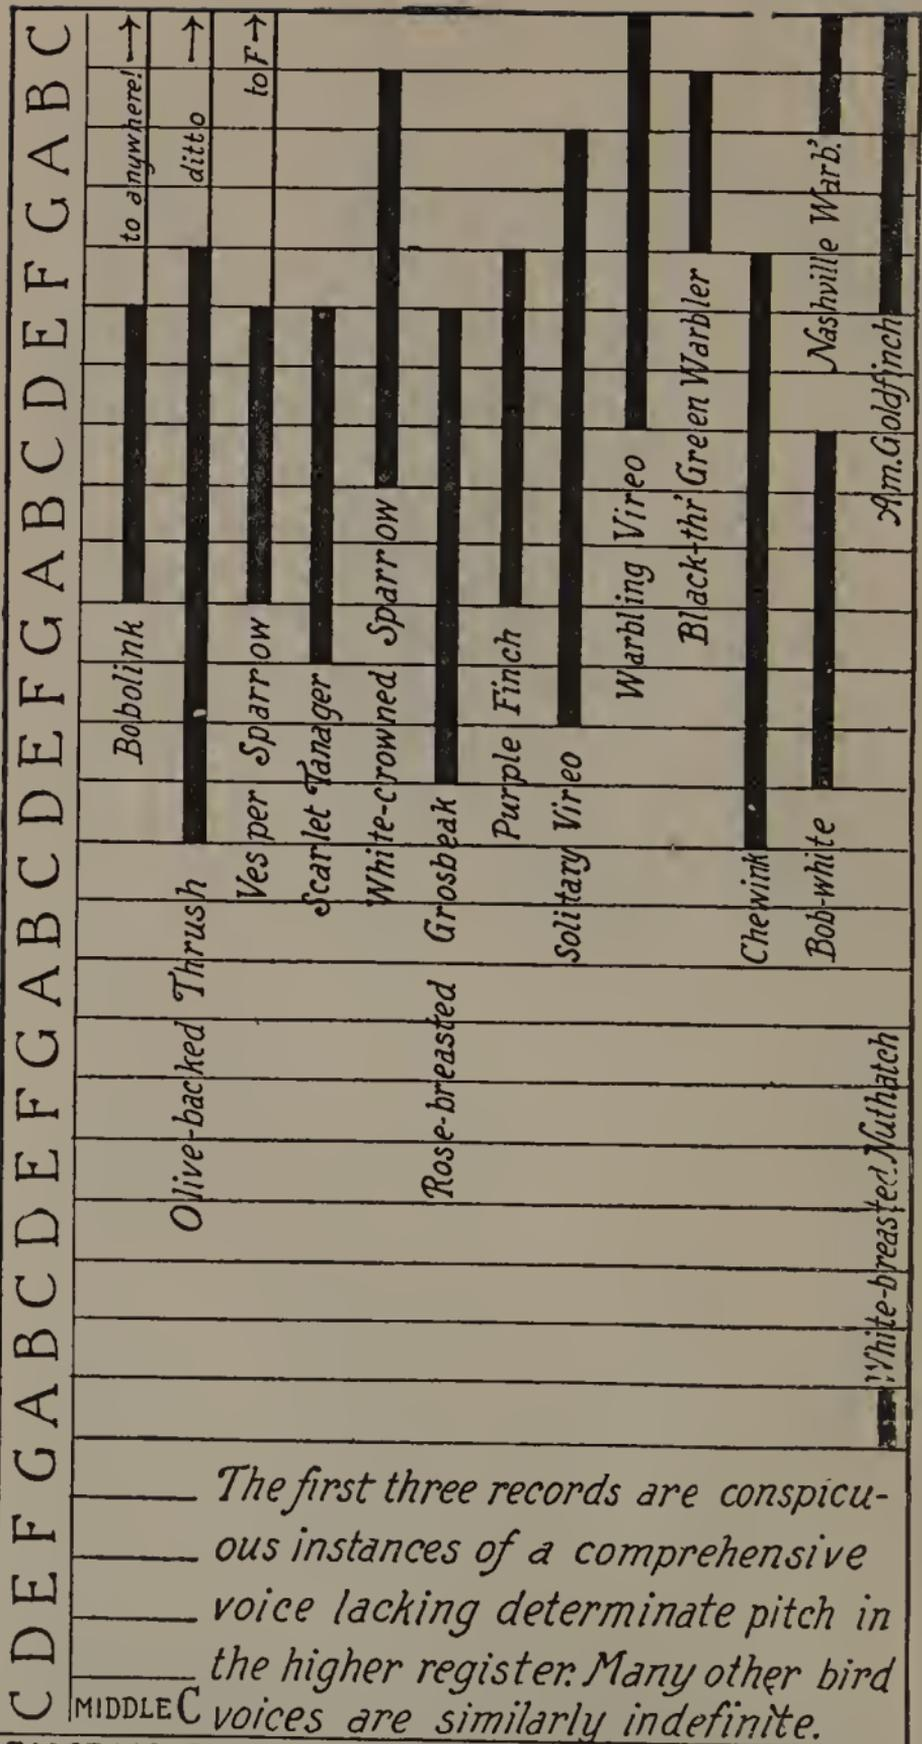 C D E F G A B C D E F G A B C D E F G A B C D E F G A B C
Bobolink to anywhere! →
Olive-backed Thrush ditto →
Vesper Sparrow to F→
Scarlet Tanager
White-crowned Sparrow
Rose-breasted Grosbeak
Purple Finch
Solitary Vireo
Warbling Vireo
Black-thr' Green Warbler
Chewink
Bob-white
Nashville Warb.'
White-breasted Nuthatch
Am. Goldfinch
MIDDLE C
The first three records are conspicu-
ous instances of a comprehensive
voice lacking determinate pitch in
the higher register. Many other bird
voices are similarly indefinite.